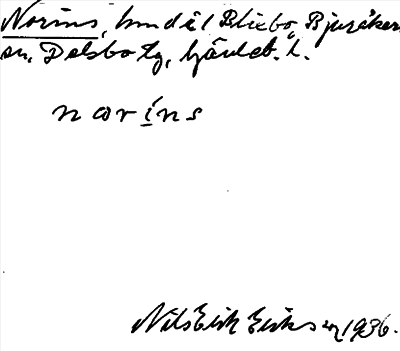 Norins, hmd i l Bliebo, Bjuråkers
sn, Delsbo tg, Gävleb. l.
norins
Nils Erik Eriksson 1936.